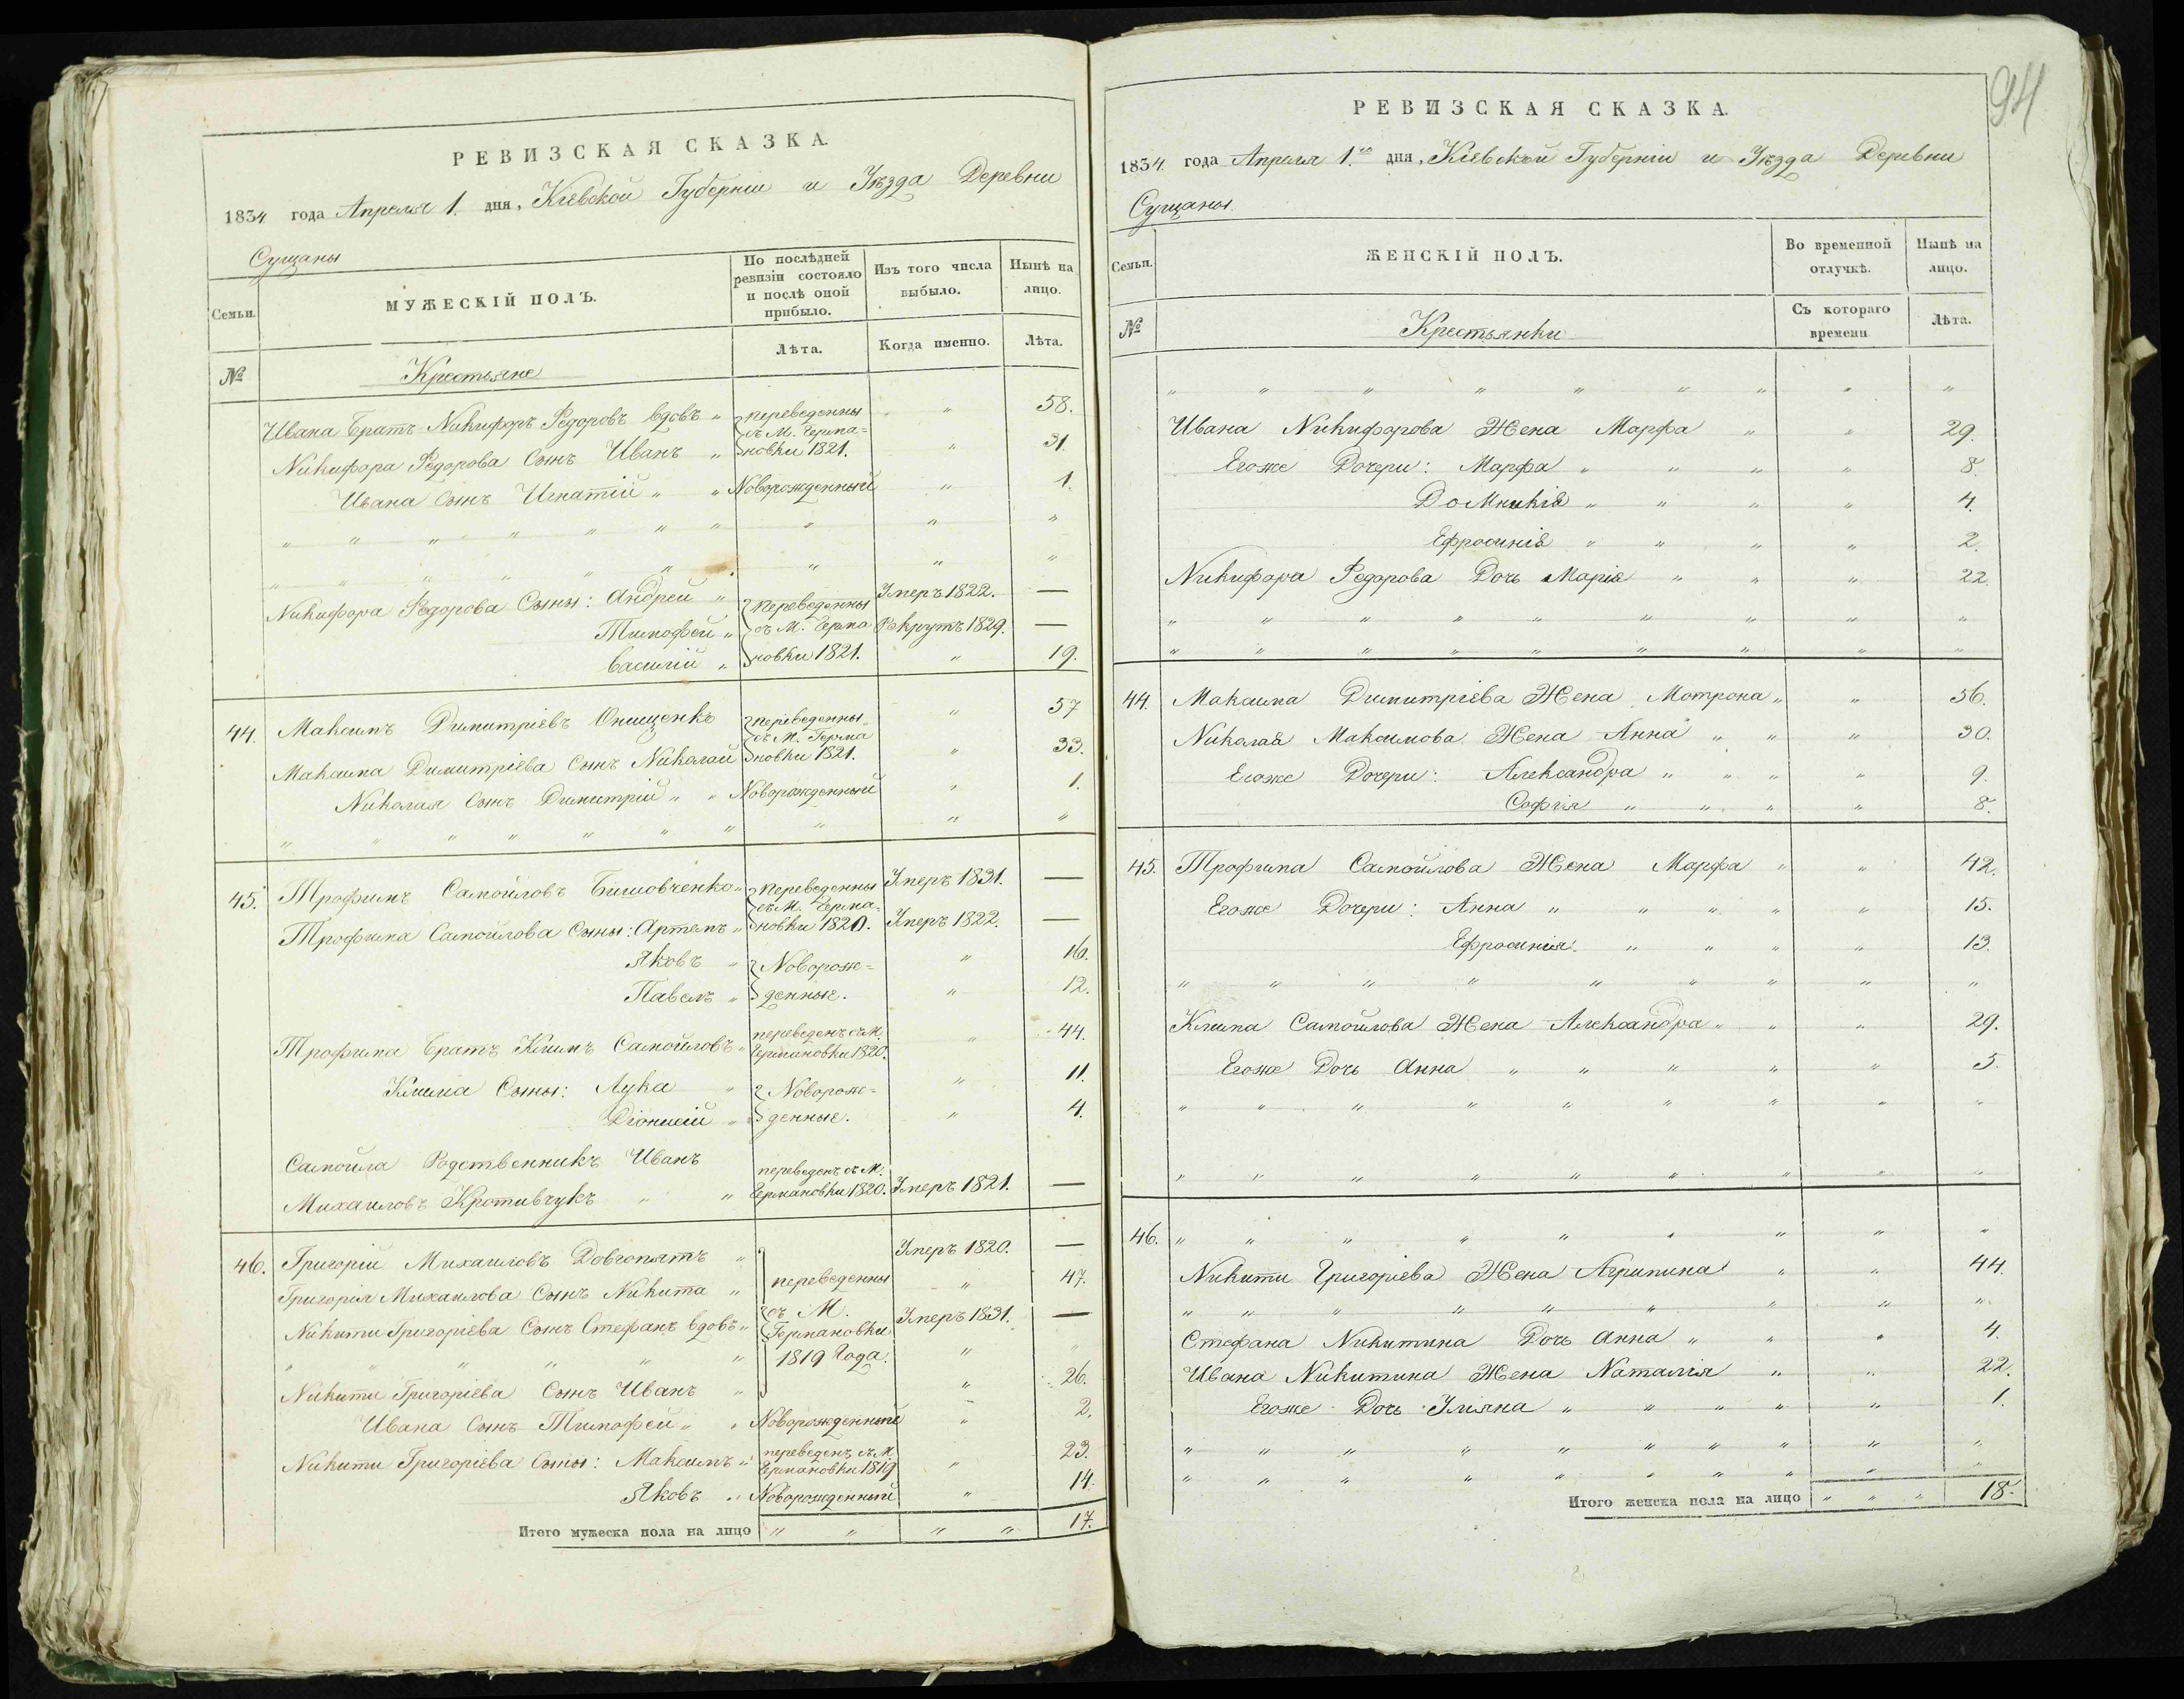 РЕВИЗСКАЯ СКАЗКА.
1834 года Апреля 1. дня, Кіевской Губерніи и Уѣзда Деревни
Сущаны
Семьи.
МУЖЕСКІЙ ПОЛЪ.
По послѣдней ревизіи состояло и послѣ оной прибыло.
Изъ того числа выбыло.
Нынѣ на лицо.
№
Крестьяне
Лѣта.
Когда именно.
Лѣта.
Ивана Братъ Никифоръ Ѳедоровъ вдовъ " переведенны " 58.
Никифора Ѳедорова Сынъ Иванъ " съ М. Герма=новки 1821. " 31.
Ивана Сынъ Игнатій " " Новорожденный " 1.
" " " " " " " " " "
" " " " " " " " "
Никифора Ѳедорова Сыны: Андрей " переведенны Умеръ 1822. —
Тимофей " съ М. Герма Рекрутъ 1829. —
Василій " новки 1821. " 19.
44. Максимъ Димитріевъ Онищенко переведенны " 57
Максима Димитріева Сынъ Николай съ М. Герма новки 1821. " 33.
Николая Сынъ Димитрій " " Новорожденный " 1.
" " " " " " " " " "
45. Трофимъ Самойловъ Бишовченко " переведенны Умеръ 1831. —
Трофима Самойлова Сыны: Артемъ " съ М. Герма=новки 1820. Умеръ 1822. —
Яковъ " Новорож= " 16.
Павелъ " денные. " 12.
Трофима Братъ Климъ Самойловъ " переведенъ съ М. Германовки 1820. " 44.
Клима Сыны: Лука " Новорож= " 11.
Діонисій " денные. " 4.
Самойла Родственникъ Иванъ
Михаиловъ Кротивчукъ " " переведенъ съ М: Германовки 1820. Умеръ 1821. —
46. Григорій Михаиловъ Довгопятъ " Умеръ 1820. —
Григорія Михаилова Сынъ Никита " переведенны " 47.
Никиты Григоріева Сынъ Стефанъ вдовъ " съ М. Германовки Умеръ 1831. —
" " " " " " 1819 Года. " "
Никиты Григоріева Сынъ Иванъ " " 26.
Ивана Сынъ Тимофей " " Новорожденный " 2.
Никиты Григоріева Сыны: Максимъ " переведенъ съ М Германовки 1819 " 23.
Яковъ " Новорожденный " 14.
Итого мужеска пола на лицо " " " " 17.
94
РЕВИЗСКАЯ СКАЗКА.
1834. года Апреля 1.го дня, Кіевской Губерніи и Уѣзда Деревни
Сущаны.
Семьи.
ЖЕНСКІЙ ПОЛЪ.
Во временной отлучкѣ.
Нынѣ на лицо.
№
Крестьянки
Съ котораго времени
Лѣта.
" " " " " " " " "
Ивана Никифорова Жена Марфа " " 29.
Егоже Дочери: Марфа " " " " 8.
Домникія " " " " 4.
Ефросинія " " " " 2.
Никифора Ѳедорова Дочь Марія " " " 22.
" " " " " " " " "
" " " " " " " " "
44. Максима Димитріева Жена Мотрона " " 56.
Николая Максимова Жена Анна " " " 30.
Егоже Дочери: Александра " " " " 9.
Софія " " " " 8.
45. Трофима Самойлова Жена Марфа " " 42.
Егоже Дочери: Анна " " " " " 15.
Ефросинія " " " " 13.
" " " " " " " " "
Клима Самойлова Жена Александра " " " 29.
Егоже Дочь Анна " " " " " 5.
" " " " " " " " "
" " " " " " " " "
46. " " " " " " " " "
Никиты Григоріева Жена Агрипина " " 44.
" " " " " " " " "
Стефана Никитина Дочь Анна " " " 4.
Ивана Никитина Жена Наталія " " 22.
Егоже Дочь Уліяна " " " " " 1.
" " " " " " " " " "
" " " " " " " " " "
Итого женска пола на лицо " " " 18.